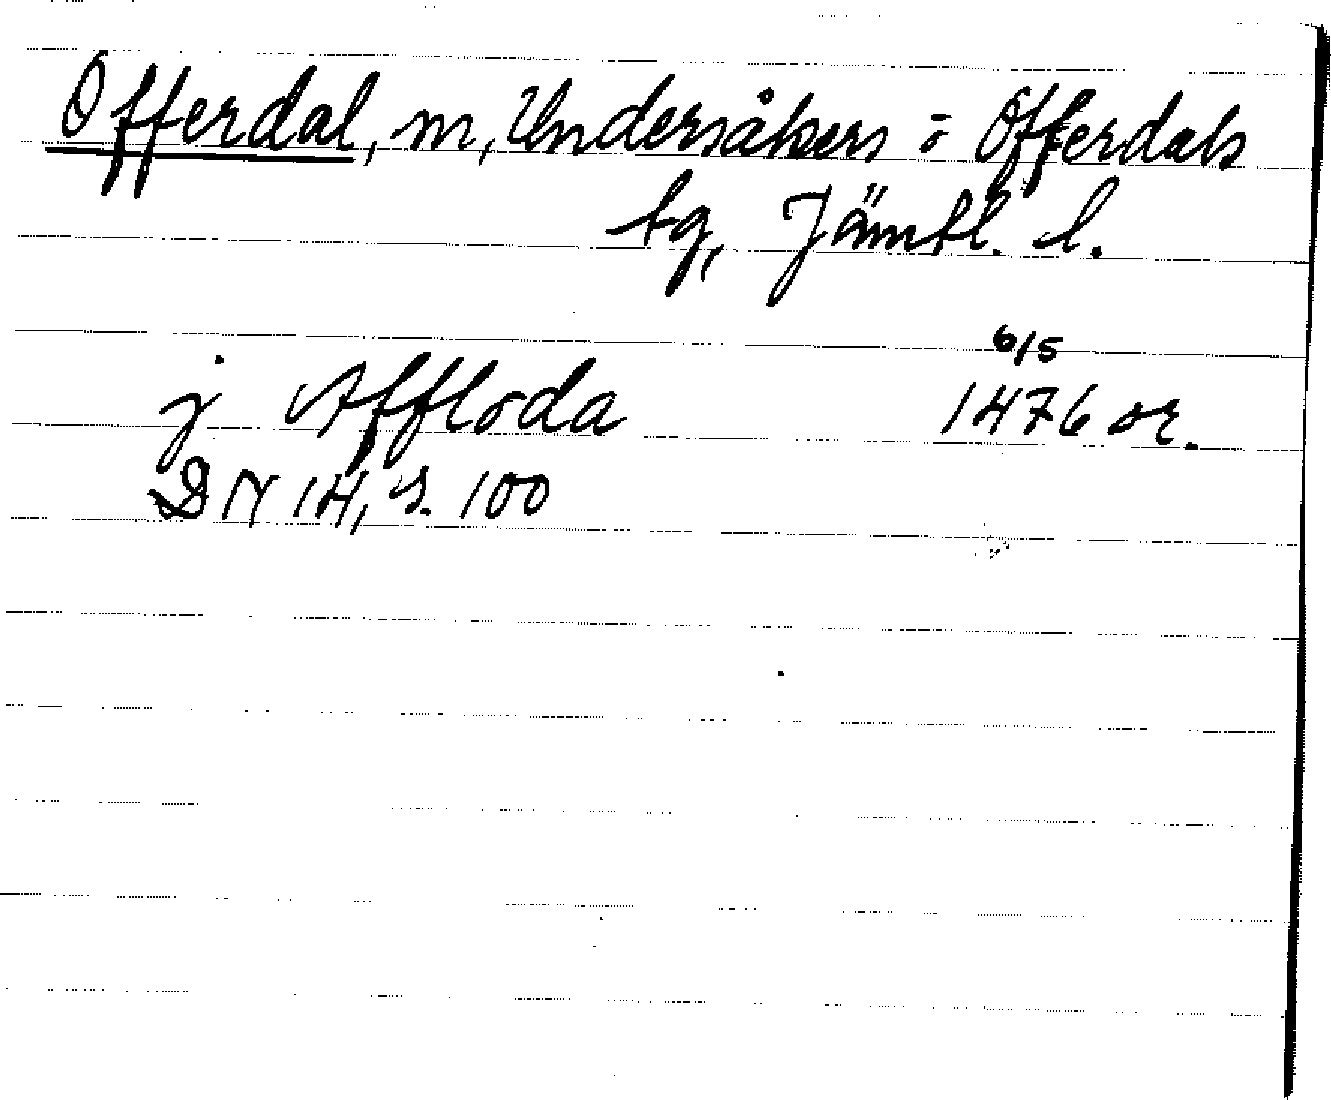 Offerdal, m, Undersåkers o Offerdals
tg, Jämtl. l.
6/5
j Affloda 1476 or.
DN 14, s. 100